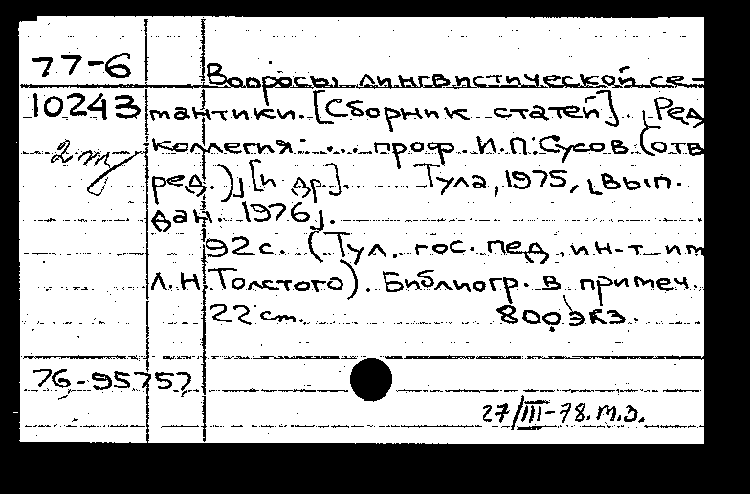 77-6
10243
2 т
Вопросы лингвистической се-
мантики. [Сборник статей] Ред
коллегия: ... проф. И.П. Сусов (отв
ред.) [и др]. Тула, 1975, [вып.
дан. 1976].
92 с. (Тул. гос. пед. ин-т им
Л.Н.Толстого). Библиогр. в примеч.
22 см. 800 экз.
76-95757
27/III-78. М.О.